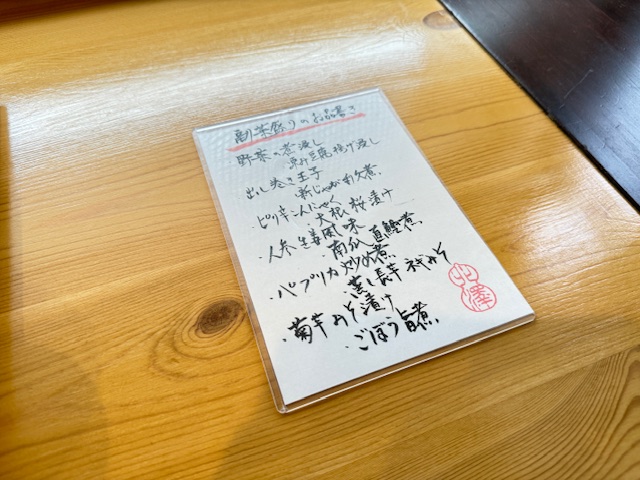 副菜祭りのお品書き
野菜の煮浸し
凍み豆腐揚げ浸し
出し巻き玉子
新じゃが利久煮
・ピリ辛こんにゃく
・大根桜漬け
・人参生姜風味
・南瓜直鰹煮
・パプリカ炒め煮
・蒸し長芋ネギみそ
・菊芋みそ漬け
・ごぼう旨煮